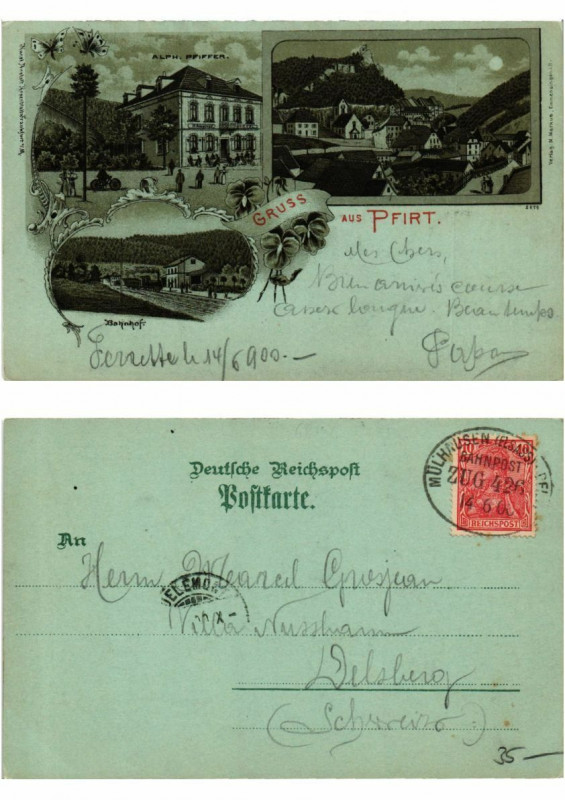 ALPH. PFIFFER.
GRUSS
AUS PFIRT.
Bahnhof.
Mes Chers,
Bien arrivés course
assez longue. Beau temps.
Papa
Ferrette le 14/6 900.—
MÜLHAUSEN (ELSASS)
BAHNPOST
ZUG 426
14 6 0
REICHSPOST
Deutsche Reichspost
Postkarte.
An
Herrn Marcel Grosjean
DELÉMO
Villa
Delsberg
(Schweiz.)
35—